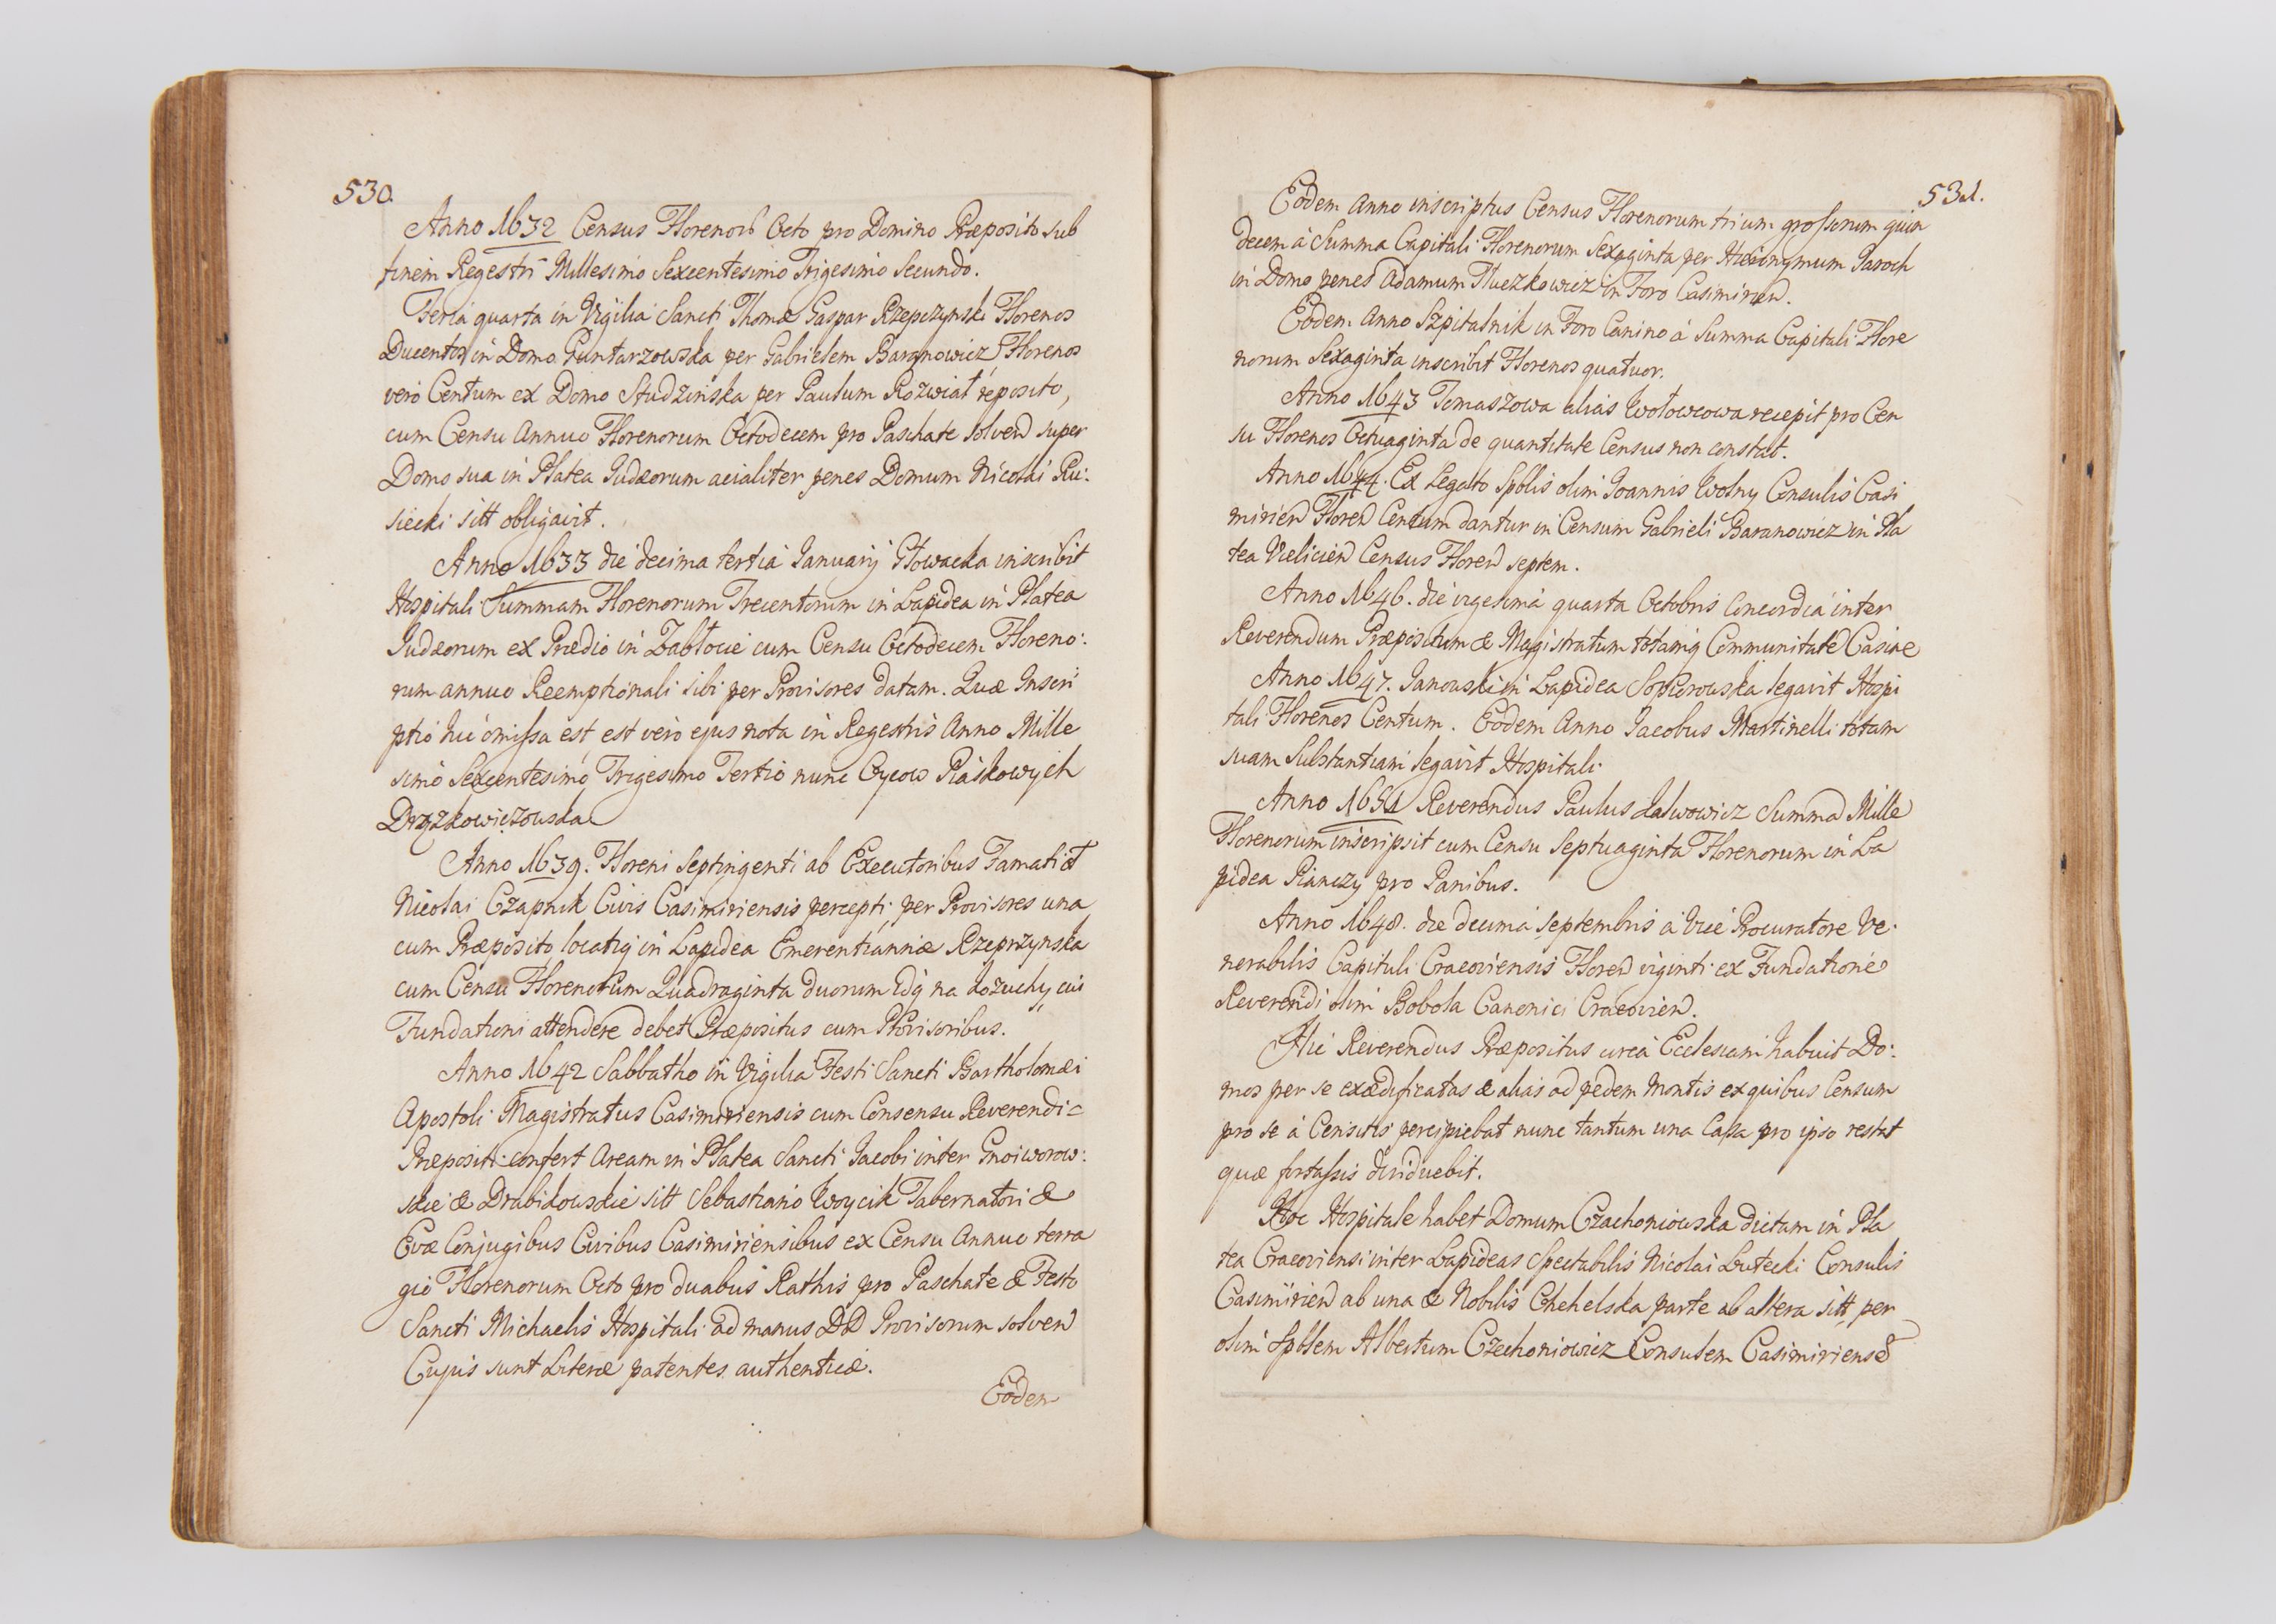 530.
Anno 1632 Census Florenor̃ Octo pro Domino Præposito sub
finem Regestri Millesimo Sexcentesimo Trigesimo Secundo.
Feria quarta in Vigilia Sancti Thomæ Gaspar Rzepczynski Florenos
Ducentos in Domo Guntarzowska per Gabrielem Baranowicz, Florenos
vero Centum ex Domo Studzinska per Paulum Rozwiat reposito,
cum Censu Annuo Florenorum Octodecem pro Paschate solven super
Domo sua in Platea Judæorum acialiter penes Domum Nicolai Ru:
siecki sitt obligavit.
Anno 1633 die decima tertia Januarij Głowacka inscribit
Hospitali Summam Florenorum Trecentorum in Lapidea in Platea
Judæorum ex Prædio in Zabłocie cum Censu Octodecem Floreno:
rum annuo Reemptionali sibi per Provisores datam. Quæ Inscri
ptio hic omissa est, est vero ejus nota in Regestris Anno Mille
simo Sexcentesimo Trigesimo Tertio nunc Oycow Piaskowych
Dryzkowiczowska
Anno 1639. Floreni Septingenti ab Executoribus Famati &
Nicolai Czapnik Civis Casimiriensis percepti per Provisores una
cum Præposito, locatiq in Lapidea Emerentiannæ Rzeprzynska
cum Censu Florenorum Quadraginta duorum Idq na kozuchy, cui
Fundationi attendere debet Præpositus cum Provisoribus.
Anno 1642 Sabbatho in Vigilia Festi Sancti Bartholomæi
Apostoli Magistratus Casimiriensis cum Consensu Reverendi=
Præpositi confert Aream in Platea Sancti Jacobi inter Gnoiworow:
skie & Drabikowskie sitt Sebastiano Woycik Tabernatori &
Evæ Conjugibus Civibus Casimiriensibus ex Censu Annuo terra
gio Florenorum Octo pro duabus Rathis pro Paschate & Festo
Sancti Michaelis Hospitali ad manus DD Provisorum solven
Cujus sunt Literæ patentes authenticæ.
Eodem
531.
Eodem Anno inscriptus Census Florenorum trium grossorum quin
decem à Summa Capitali Florenorum Sexaginta per Hieronymum Paroch
in Domo penes Adamum Tłuczkowicz in Foro Casimirien.
Eodem Anno Szpitalnik in Foro Canino à Summa Capitali Flore
norum Sexaginta inscribit Florenos quatuor.
Anno 1643 Tomaszowa alias Wołowcowa recepit pro Cen
su Florenos Octuaginta de quantitate Census non constat.
Anno 1644. Ex Legato Spblis olim Joannis Wolny Consulis Casi
mirien Floren Centum dantur in Censum Gabrieli Baranowicz in Pla
tea Vielicien Census Floren septem.
Anno 1646. die vigesima quarta Octobris Concordia inter
Reverendum Præpositum & Magistratum totamq Communitate Casire
Anno 1647. Janowski in Lapidea legavit Hospi
tali Florenos Centum. Eodem Anno Jacobus Martinelli totam
suam Substantiam legavit Hospitali.
Anno 1651 Reverendus Paulus Summa Mille
Florenorum inscripsit cum Censu Septuaginta Florenorum in La
pidea Pianczy pro Panibus.
Anno 1648. die decima Septembris à Vice Procuratore Ve
nerabilis Capituli Cracoviensis Floren viginti ex Fundatione
Reverendi olim Bobola Canonici Cracovien.
Hic Reverendus Præpositus circa Ecclesiam habuit Do:
mos per se exædificatas & alias ad pedem Montis ex quibus Censum
pro se à Censitis percipiebat nunc tantum una Casa pro ipso restat
quæ fortassis
Hoc Hospitale habet Domum Czachoniowska dictam in Pla
tea Cracoviensi inter Lapideas Spectabilis Nicolai Lutecki Consulis
Casimirien ab una & Nobilis Chehelska parte ab altera sitt, per
olim Spblem Albertum Czechoniowicz Consulem Casimiriense